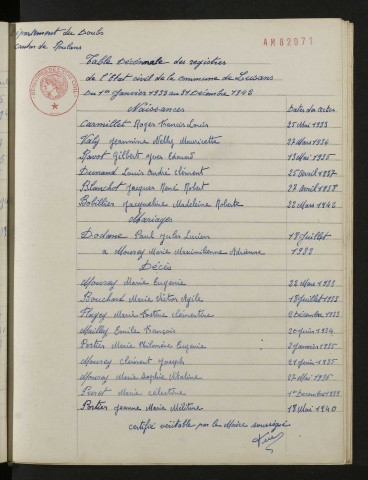 Département du Doubs
Canton de Roulans
AM82071
Table Décennale des registres
de l'Etat civil de la commune de Lusans
Du 1er Janvier 1933 au 31 Décembre 1942
Naissances Dates des actes
Carmillet Roger Francis Louis 25 Mai 1933
Valy Jeannine Nelly Mauricette 27 Mars 1934
Ravot Gilbert Yves Edouard 13 Mai 1935
Dumand Louis André Clément 25 Avril 1937
Blanchot Jacques René Robert 27 Avril 1938
Bobillier Jacqueline Madeleine Roberte 22 Mars 1942
Mariages
Dodane Paul Jules Lucien 18 Juillet
à Mourey Marie Maximilienne Adrienne 1938
Décès
Mourey Marie Eugénie 22 Mars 1933
Bouchard Marie Victor 18 Juillet 1933
Marie Clémentine 2 Décembre 1933
Mailley Emile François 20 Juin 1934
Portier Marie Philomène Eugénie 2 Janvier 1935
Mourey Clément Joseph 21 Juin 1935
Mourey Marie Sophie 27 Mai 1936
Marie Célestine 1er Décembre 1938
Portier Jeanne Marie 18 Mai 1940
certifié véritable par le Maire soussigné